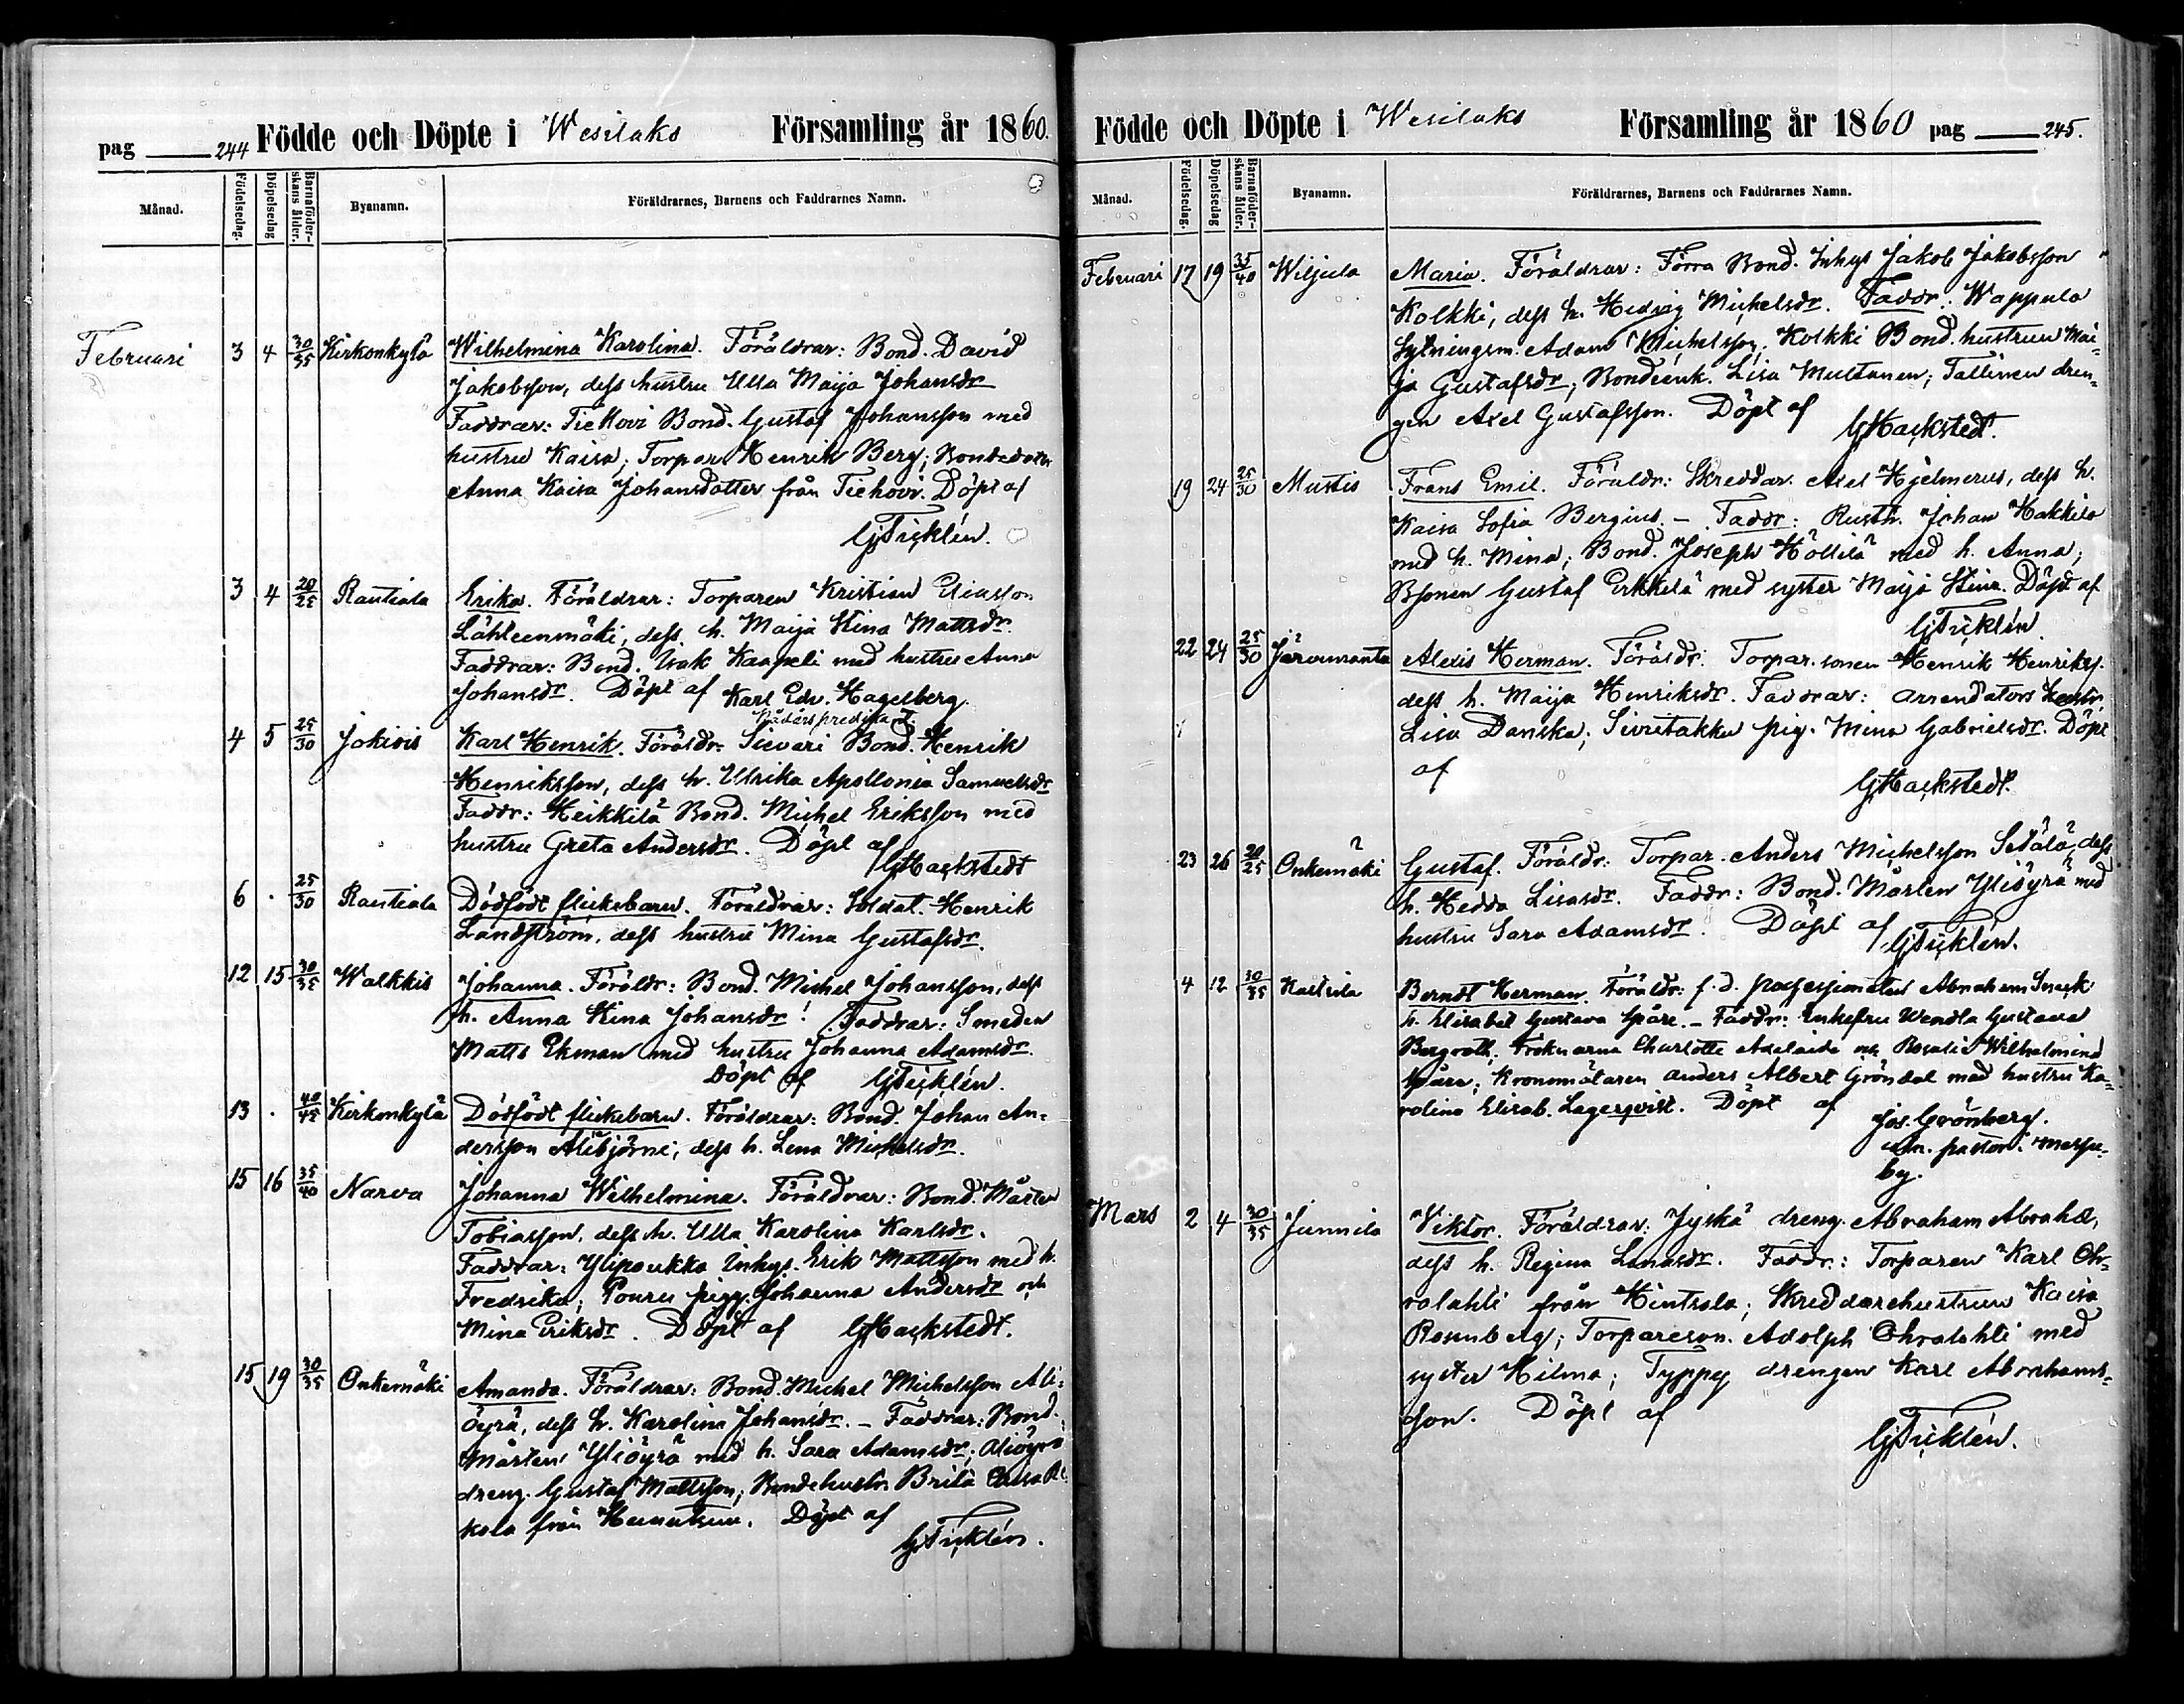 pag 244 Födde och Döpte i Wesilaks Församling år 1860.
Månad.
Födelsedag.
Döpelsedag
Barnaföder-
skans ålder.
Byanamn.
Föräldrarnes, Barnens och Faddrarnes Namn.
Februari 3 4 30/35 Kirkonkylä Wilhelmina Karolina. Föräldrar: Bond. David
Jakobsson, dess hustru Ulla Maija Johansdr
Faddrar: Tiehovi Bond. Gustaf Johansson med
hustru Kaisa; Torpar. Henrik Berg; Bondedottr
Anna Kaisa Johansdotter från Tiehovi. Döpt af
GFicklén.
3 4 20/25 Rautiala Erika. Föräldrar: Torparen Kristian Eliasson
Lähteenmäki, dess h. Maija Stina Mattsdr.
Faddrar: Bond. Isak Kaapeli med hustru Anna
Johansdr. Döpt af Karl Edv. Hagelberg.
Nådårspredikant.
4 5 25/30 Jokiois Karl Henrik. Föräldr. Sievari Bond. Henrik
Henriksson, dess h. Ulrika Apollonia Samuelsdr
Faddr: Heikkilä Bond. Michel Eriksson med
hustru Greta Andersdr. Döpt af
GHackstedt
6 . 25/30 Rautiala Dödfödt flickebarn. Föräldrar: Soldat. Henrik
Landström, dess hustru Mina Gustafsdr.
12 15 30/35 Walkkis Johanna. Föräldr: Bond. Michel Johansson, dess
h. Anna Stina Johansdr! Faddrar: Smeden
Matts Ekman med hustru Johanna Adamsdr.
Döpt af GFicklén.
13 . 40/45 Kirkonkylä Dödfödt flickebarn. Föräldrar: Bond. Johan An-
dersson Alibjörni, dess h. Lena Michelsdr.
15 16 35/40 Narva Johanna Wilhelmina. Föräldrar: Bond. Mårten
Tobiasson, dess h. Ulla Karolina Karlsdr.
Faddrar: Ylipoukka Inhys. Erik Mattsson med h.
Fredrika; Pouru pigg. Johanna Andersdr och
Mina Eriksdr. Döpt af GHackstedt.
15 19 30/35 Onkemäki Amanda. Föräldrar: Bond. Michel Michelsson Ali-
öyrä, dess h. Karolina Johansdr. – Faddrar: Bond.
Mårten Yliöyrä med h. Sara Adamsdr; Aliöyrä
dreng. Gustaf Mattsson; Bondehustr. Brita Caisa
kola från. Döpt af
GFicklén.
Födde och Döpte i Wesilaks Församling år 1860 pag 245.
Månad.
Födelsedag.
Döpelsedag
Barnaföder-
skans ålder.
Byanamn.
Föräldrarnes, Barnens och Faddrarnes Namn.
Februari 17 19 35/40 Wiljula Maria. Föräldrar: Förra Bond. Inhys Jakob Jakobsson
Kolkki, dess h. Hedvig Michelsdr. Faddr: Wappula
Sytningsm. Adam Michelsson; Kolkki Bond. hustrun Mai-
ja Gustafsdr; Bondeenk. Lisa Multanen; Tallinen dren-
gen Axel Gustafsson. Döpt af
GHackstedt.
19 24 25/30 Mustis Frans Emil. Föräldr: Skreddar. Axel Hjelmerus, dess h.
Kaisa Sofia Bergius. – Faddr: Rusth. Johan Hakkila
med h. Mina; Bond. Joseph Höllilä med h. Anna;
Bsonen Gustaf Erkkilä med syster Maija Stina. Döpt af
GFicklén.
22 24 25/30 Järvenranta Alexis Herman. Föräldr. Torpar.sonen Henrik Henriks.
dess h. Maija Henriksdr. Faddrar: Arrendators hustr.
Lisa Danska; Sivutakka pig. Mina Gabrielsdr. Döpt
af
GHackstedt.
23 26 20/25 Onkemäki Gustaf. Föräldr: Torpar. Anders Michelsson Setälä, dess
h. Hedda Lisasdr. Faddr: Bond. Mårten Yliöyrä med
hustru Sara Adamsdr. Döpt af
GFicklén.
4 12 30/35 Kaltsila Berndt Herman. Föräldr: f.d. possessionaten Abraham Snack
h. Elisabet Gustava Spåre. – Faddr: Enkefru Wendla Gustava
Bergroth; Fröknarna Charlotte Adelaide och Rosalie Wilhelmina
Spåre; Kronomätaren Anders Albert Gröndal med hustru Ka-
rolina Elisab. Lagerqvist. Döpt af
Jos. Grönberg.
adm. pastor i Messu-
by.
Mars 2 4 30/35 Junnila Viktor. Föräldrar: Jyskä dreng. Abraham Abrahs,
dess h. Regina Lenasdr. Faddr.: Torparen Karl Oh-
ralahti från Hintsala; Skreddarehustrun Kaisa
Rosenberg; Torpareson. Adolph Ohralahti med
syster Hilma; Typpy drengen Karl Abrahams-
son. Döpt af
GFicklén.